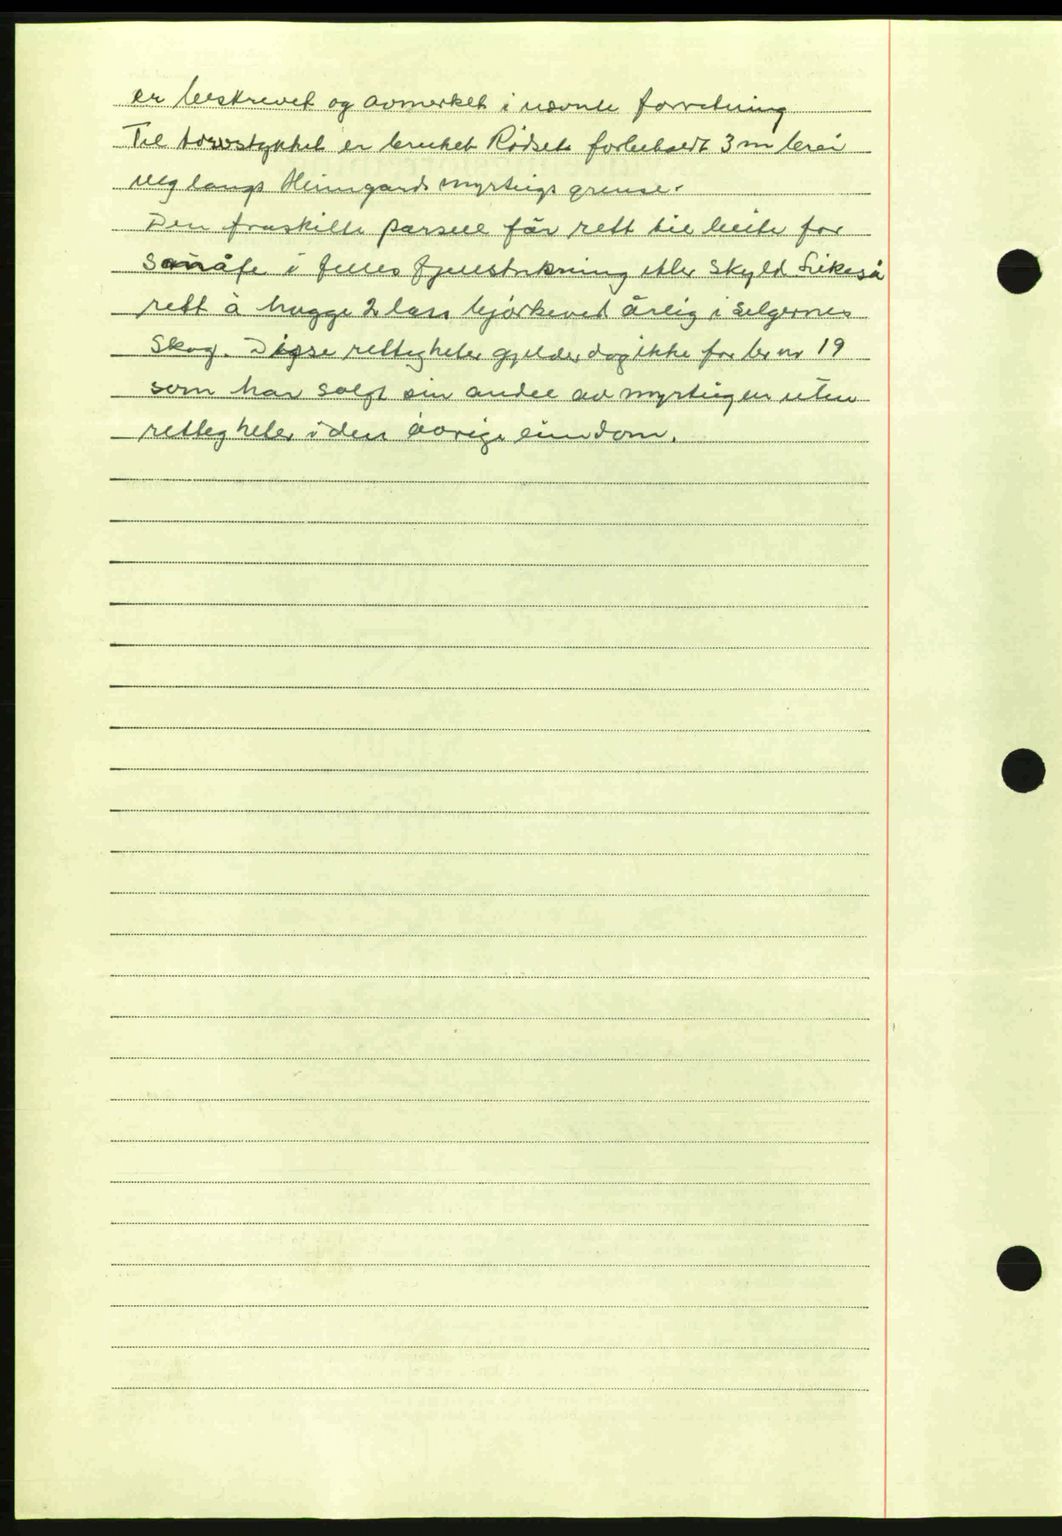 er beskrevet og avmerket i nevnte forretning
Til torvstykket er bruket Rødset forbeholdt 3 m brei
veg langs Heimgards myrteigs grense.
Den fraskilte parsell får rett til beite for
småfe i felles fjellstrekning etter skyld likeså
rett å hugge 2 lass bjørkeved årlig i selgernes
skog. Disse rettigheter gjelder dog ikke for br nr 19
som har solgt sin andel av myrteigen uten
rettigheter i den øvrige eiendom.